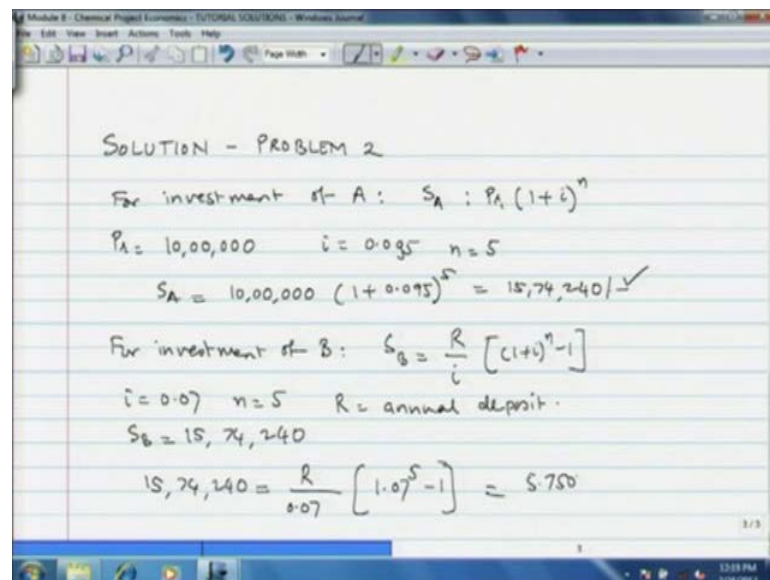 Module 8 - Chemical Project Economics - TUTORIAL SOLUTIONS - Windows Journal
File Edit View Insert Actions Tools Help
Page Width
SOLUTION - PROBLEM 2
For investment of A : S_A : P_A (1+i)^n
P_A = 10,00,000 i = 0.095 n = 5
S_A = 10,00,000 (1+0.095)^5 = 15,74,240/- ✓
For investment of B : S_B = R/i [(1+i)^n - 1]
i = 0.07 n = 5 R = annual deposit.
S_B = 15,74,240
15,74,240 = R/0.07 [1.07^5 - 1] = 5.750
3/3
3
12:19 PM